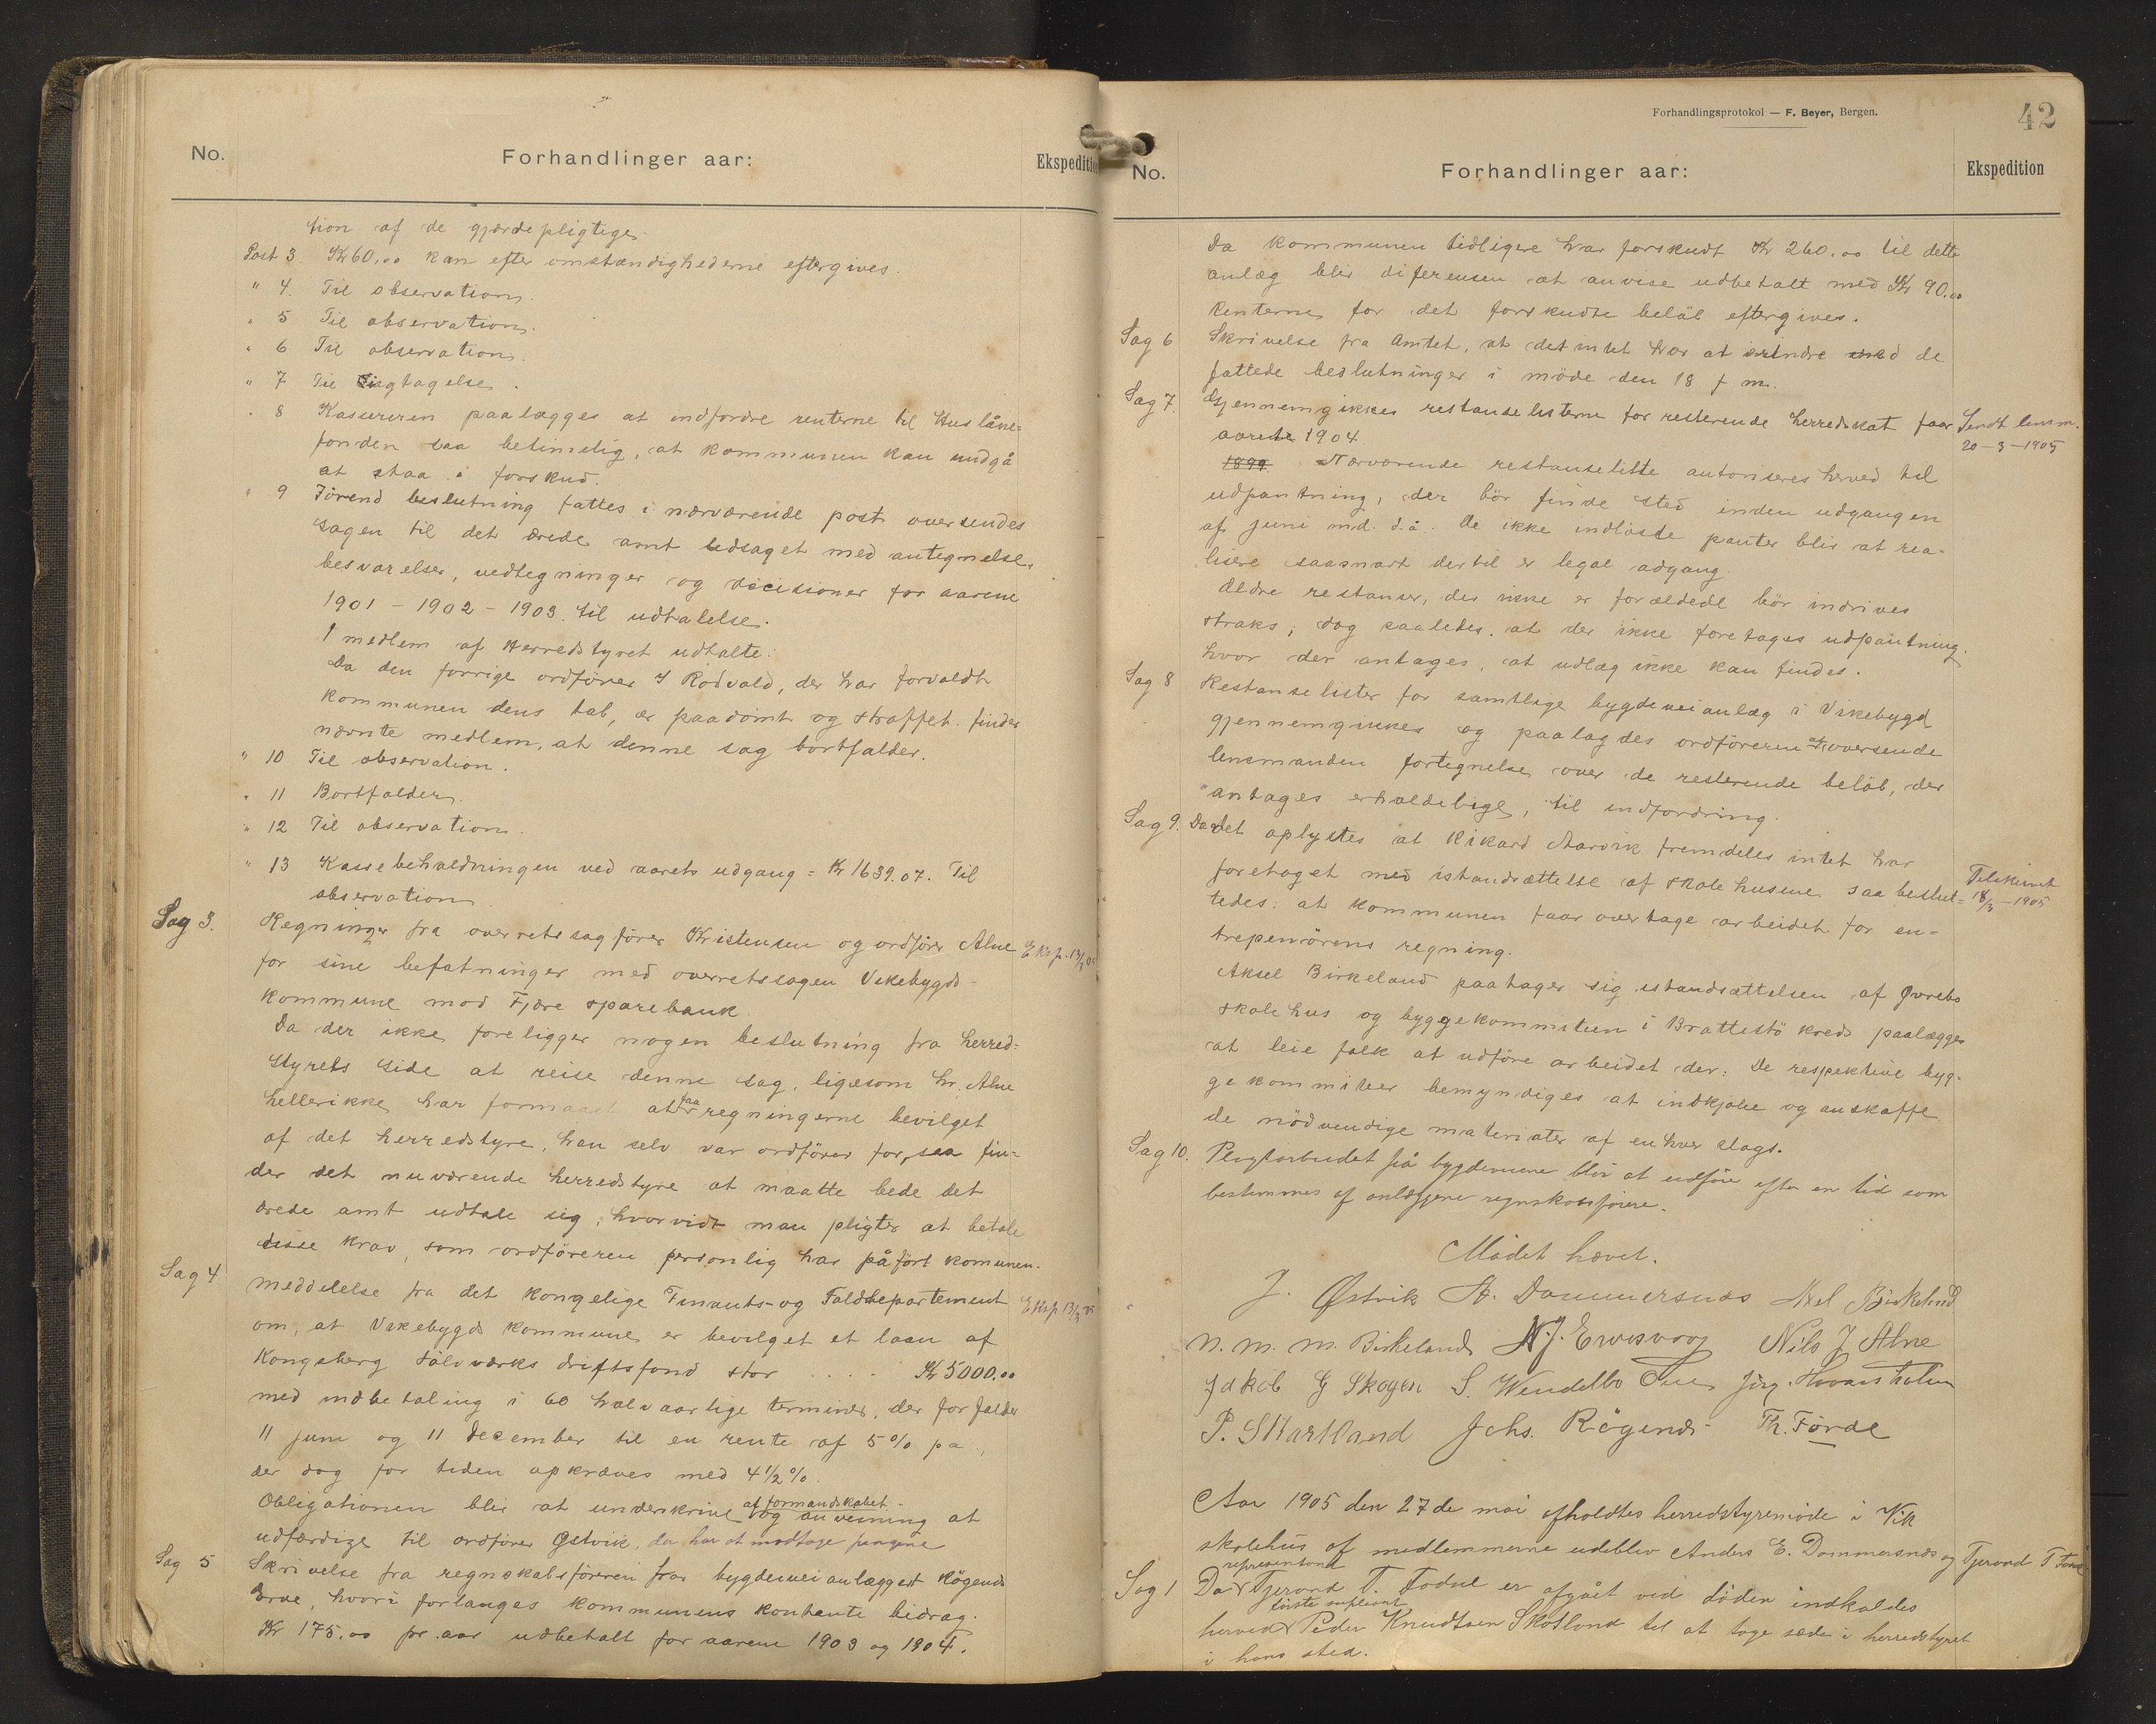 No.
Forhandlinger aar:
Ekspedition
tion af de gjærdepligtige.
Post 3. Kr 60.00 kan efter omstændighederne eftergives.
" 4. Til observation.
" 5 Til observation.
" 6 Til observation.
" 7 Til iagtagelse.
" 8 Kasereren paalægges at indfordre renterne til Huslåne=
fonden saa betimelig, at kommunen kan undgå
at staa i forskud.
" 9 Førend beslutning fattes i nærværende post oversendes
sagen til det ærede amt ledsaget med antegnelse,
besvarelser, vedtegninger og decisioner for aarene
1901 - 1902 - 1903. til udtalelse.
1 medlem af Herredstyret udtalte:
Da den forrige ordfører I Rødvald, der har forvaldt
kommunen dens tab, er paadømt og straffet. finder
nævnte medlem, at denne sag bortfalder.
" 10 Til observation.
" 11 Bortfalder.
" 12 Til observation.
" 13 Kassebeholdningen ved aarets udgang = Kr 1639.07. Til
observation
Sag 3. Regninger fra overretssagfører Kristensen og ordfører Alne Eksp. 13/3 05
for sine befatninger med overretssagen Vikebygds-
kommune mod Fjære sparebank.
Da der ikke foreligger nogen beslutning fra herred=
styrets side at reise denne sag, ligesom hr. Alne
hellerikke har formaaet at faa regningerne bevilget
af det herredstyre, han selv var ordfører for, saa fin=
der det nuværende herredstyre at maatte bede det
ærede amt udtale sig, hvorvidt man pligter at betale
disse krav, som ordføreren personlig har påført komunen.
Sag 4 meddelelse fra det kongelige Finants- og Tolddepartement Eksp 13/3 05
om, at Vikebygds kommune er bevilget et laan af
Kongsberg sølvværks driftsfond stor . . . . Kr 5000.00
med indbetaling i 60 halvaarlige terminer, der forfalder
11 juni og 11 december til en rente af 5% pa.,
der dog for tiden opkræves med 4 1/2 %.
Obligationen blir at underskrive af formandskabet og anvisning at
udfærdige til ordfører Østvik, der har at modtage pengene
Sag 5 Skrivelse fra regnskabsføreren for bygdeveianlægget Rögends
Ørve, hvori forlanges kommunens kontante bidrag.
Kr 175.00 pr. aar udbetalt for aarene 1903 og 1904.
Forhandlingsprotokol — F. Beyer, Bergen.
42
No.
Forhandlinger aar:
Ekspedition
Da kommunen tidligere har forskudt Kr 260.00 til dette
anlæg blir diferensen at anvise udbetalt med Kr 90.00
Renterne for det forskudte beløb eftergives.
Sag 6 Skrivelse fra Amtet, at det intet har at erindre mod de
fattede beslutninger i møde den 18 f m.
Sag 7. Gjennemgikkes restanselisterne for resterende herredskat for Sendt lensm.
aarene 1904. 20-3-1905
1899. Nærværende restanseliste autoriseres herved til
udpantning, der bör finde sted inden udgangen
af juni md. d.å. De ikke indløste panter blir at rea-
lisere saasnart dertil er legal adgang.
Ældre restanser, der ikke er forældede bör indrives
straks, dog saaledes, at der ikke foretages udpantning.
hvor der antages, at udlæg ikke kan findes.
Sag 8 Restanselister for samtlige bygdeveianlæg i Vikebygd
gjennemgikkes og paalagdes ordføreren at oversende
lensmanden fortegnelse over de resterende beløb, der
antages erholdelige, til indfordring.
Sag 9. Da det oplystes at Rikard Aarvik fremdeles intet har
foretaget med istandsættelse af skolehusene saa beslut= Tilskrevet
tedes: at kommunen faar overtage arbeidet for en= 18/3-1905
treprenørens regning.
Aksel Birkeland paatager sig istandsættelsen af Øvrebø
skolehus og byggekommiteen i Brattestö kreds paalægges
at leie folk at udføre arbeidet der. De respektive byg-
gekommiteer bemyndiges at indkjøbe og anskaffe
de nødvendige materialer af enhver slags.
Sag 10. Pligtarbeidet på bygdeveiene blir at udføre efter en tid som
bestemmes af anlæggene regnskabsførere.
Mødet hævet.
J. Østvik A. Dommersnæs Aksel Birkeland
N. M. M. Birkeland N. J. Ervesvaag Nils J Alne
Jakob G Skogen S. Wendelbo
P. S Hartland Johs. Rögenes Th. Førde
Aar 1905 den 27de mai afholdtes herredstyremøde i Vik
skolehus af medlemmerne udeblev Anders E. Dommersnæs og Tjerand T Førde
Sag 1 Da repræsentant Tjerand T. Førde er afgåt ved døden indkaldes
herved første supleant Peder Knudtsen Skotland til at tage sæde i herredstyret
i hans sted.